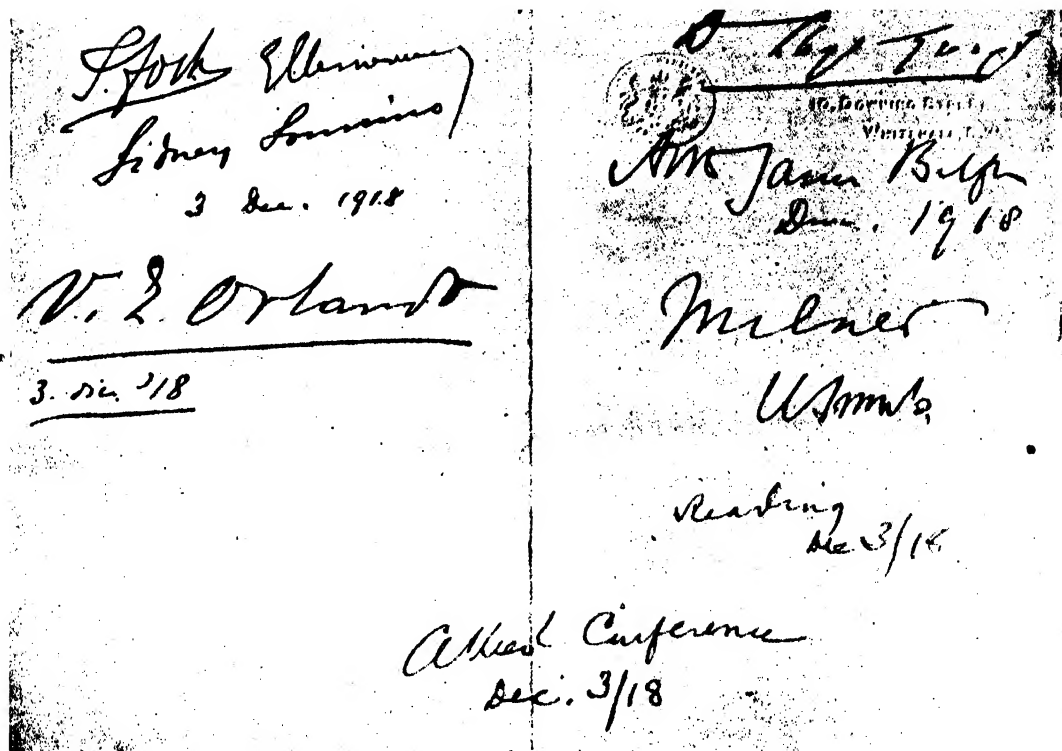 F. Foch GClemenceau
Sidney Sonnino
3 Dec. 1918
V. E. Orlando
3. Dic. '18
D Lloyd George
10, Downing Street,
Whitehall, S.W.
Arthur James Balfour
Dec. 1918
Milner
Reading
Dec 3/18
Allied Conference
Dec. 3/18